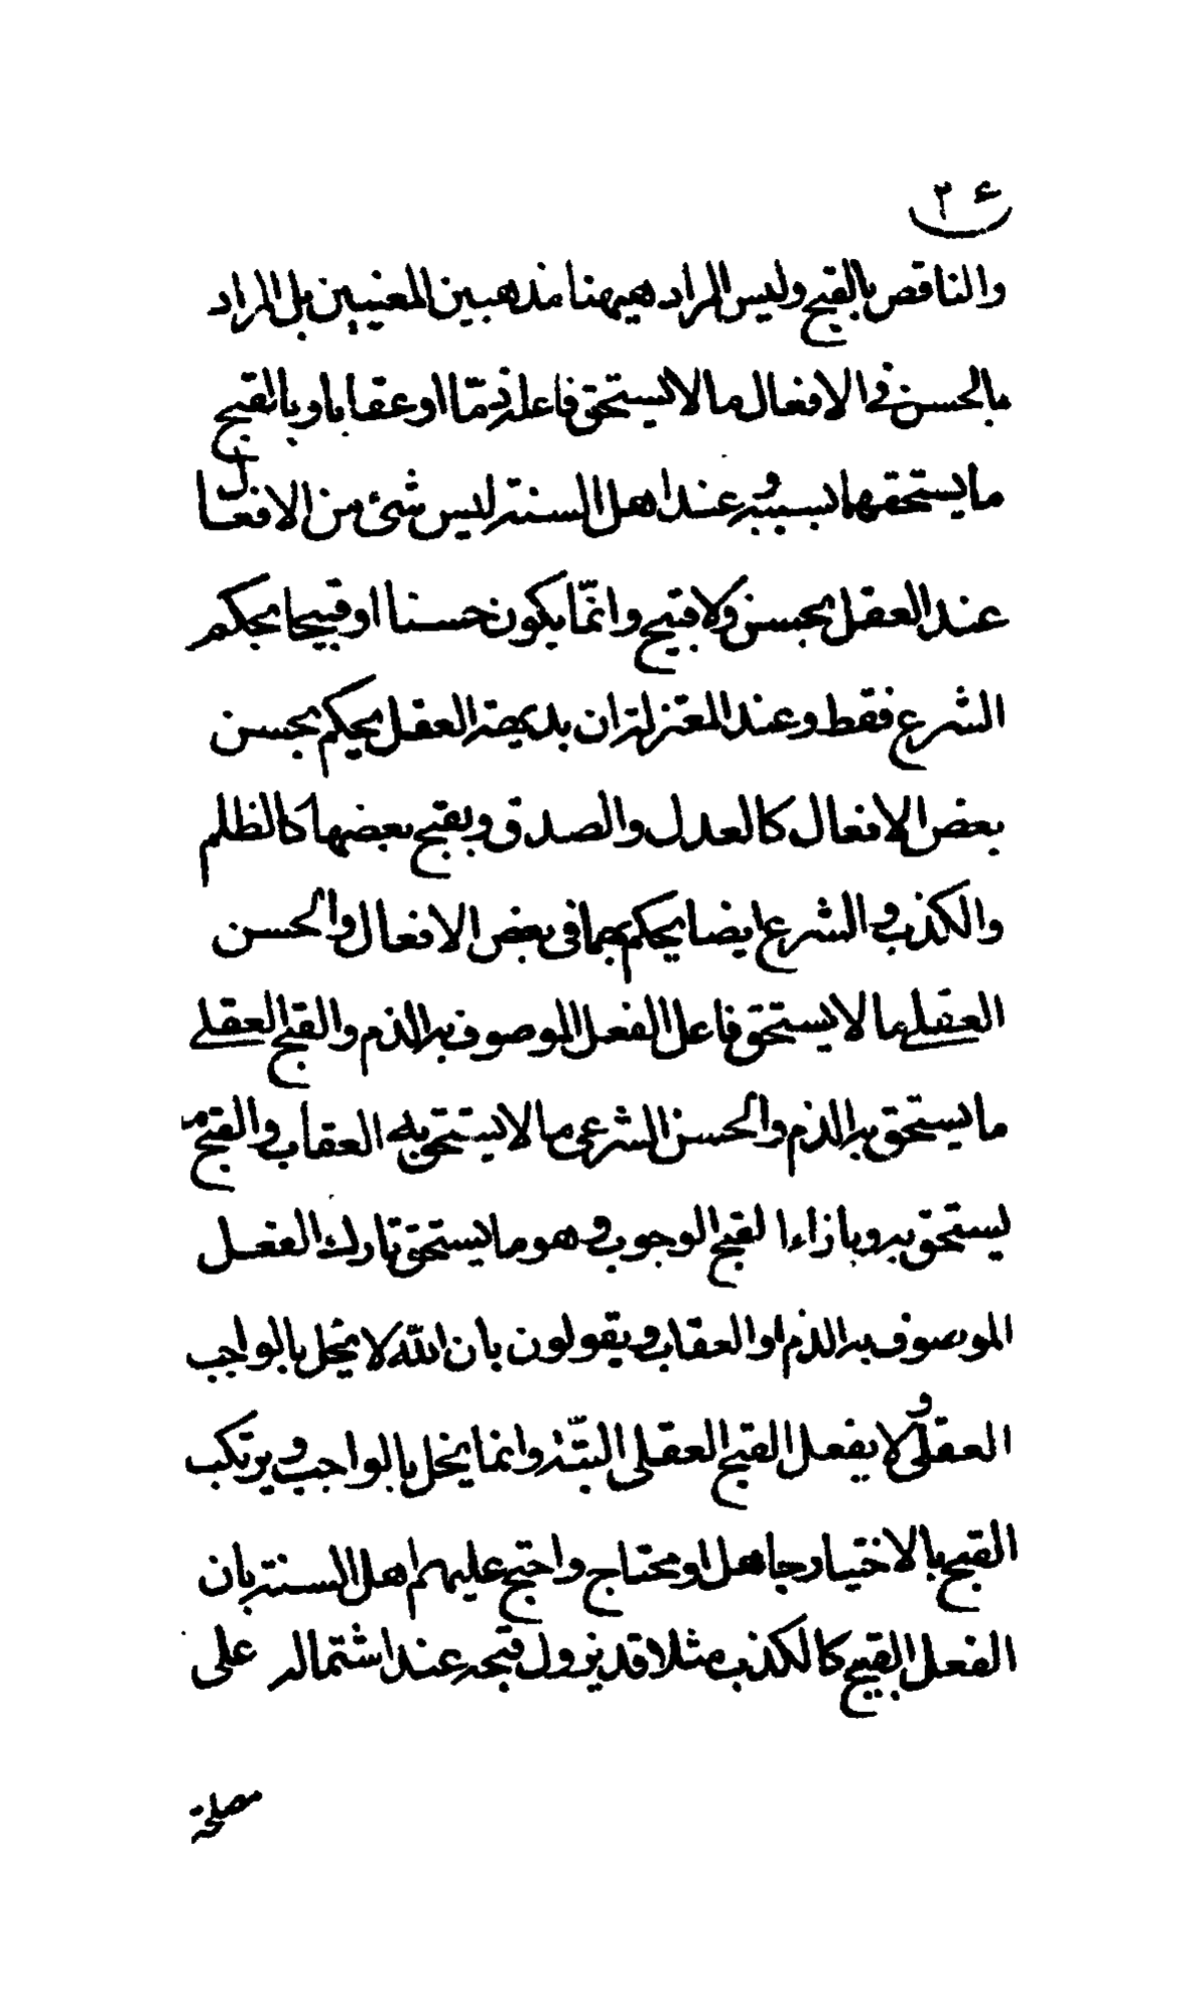 ٢٤
والناقص بالقبيح وليس المراد هيهنا مذهبين المعنيين بل المراد
بالحسن في الافعال ما لا يستحق فاعله ذمّا او عقابا و بالقبيح
ما يستحقهما بسببه و عند اهل السنة ليس شئ من الافعال
عند العقل بحسن ولا قبيح وانّما يكون حسنا او قبيحا بحكم
الشرع فقط وعند المعتزلة ان بديهة العقل يحكم بحسن
بعض الافعال كالعدل والصدق و بقبح بعضها كالظلم
والكذب و الشرع ايضا يحكم بهما في بعض الافعال والحسن
العقلي ما لا يستحق فاعل الفعل الموصوف به الذم والقبح العقلي
ما يستحق به الذم والحسن الشرعي ما لا يستحق به العقاب والقبح ما
يستحق به و بازاء القبح الوجوب و هو ما يستحق تارك الفعل
الموصوف به الذم او العقاب و يقولون بان الله لا يخل بالواجب
العقلى و لا يفعل القبح العقلى البتّة وانما يخل بالواجب و يرتكب
القبح بالاختيار جاهل او محتاج واحتج عليهم اهل السنة بان
الفعل القبيح كالكذب مثلا قد يزول قبحه عند اشتماله على
مصلحة